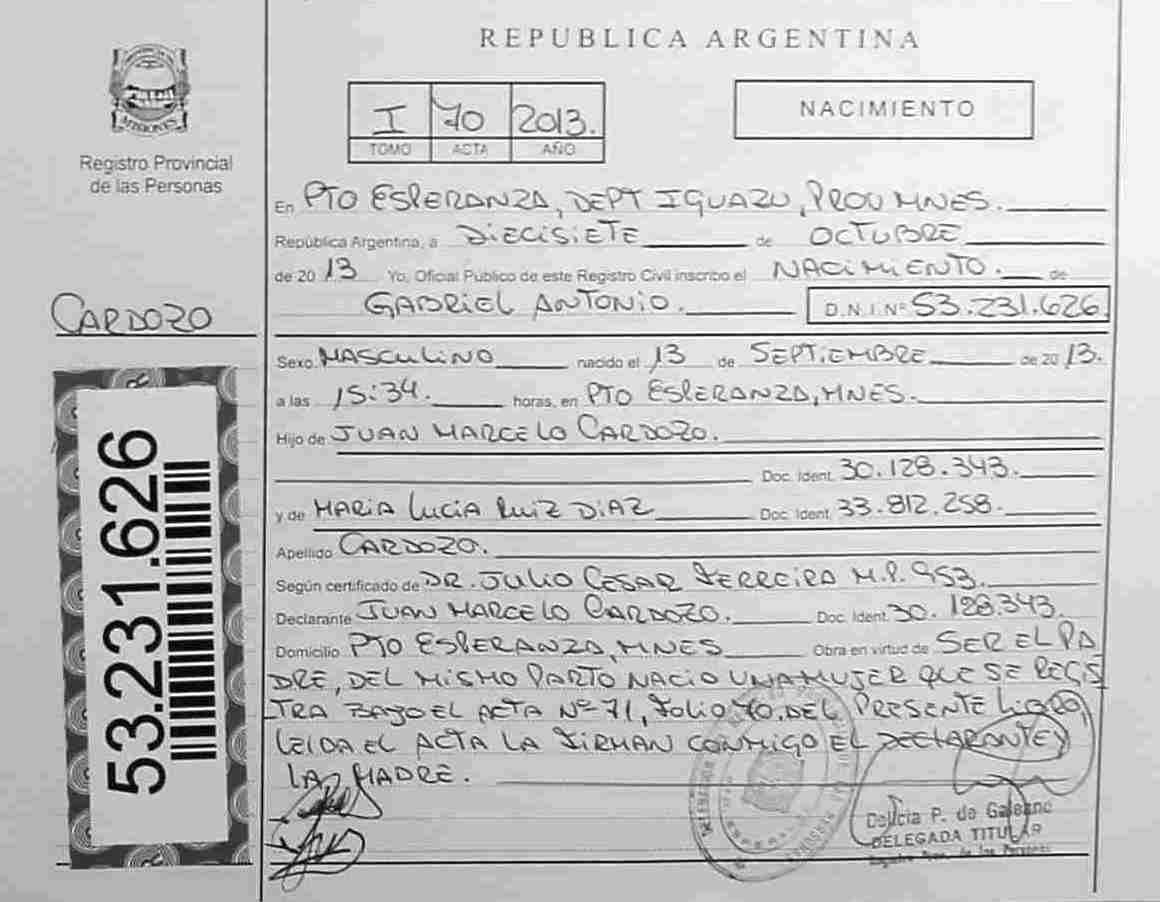 REPUBLICA ARGENTINA
MISIONES
Registro Provincial
de las Personas
I 70 2013.
TOMO ACTA AÑO
NACIMIENTO
En PTO ESPERANZA, DEPT IGUAZU, PROV MNES.
República Argentina, a DIECISIETE de OCTUBRE
de 2013 Yo, Oficial Público de este Registro Civil inscribo el NACIMIENTO. de
GABRIEL ANTONIO. D.N.I. Nº 53.231.626
CARDOZO
Sexo MASCULINO nacido el 13 de SEPTIEMBRE de 2013.
a las 15:34. horas, en PTO ESPERANZA, MNES.
Hijo de JUAN MARCELO CARDOZO.
Doc. Ident. 30.128.343.
y de MARIA LUCIA RUIZ DIAZ Doc. Ident. 33.812.258.
Apellido CARDOZO.
Según certificado de DR. JULIO CESAR FERREIRA M.P. 953.
Declarante JUAN MARCELO CARDOZO. Doc. Ident. 30.128.343.
Domicilio PTO ESPERANZA, MNES Obra en virtud de SER EL PA
DRE, DEL MISMO PARTO NACIO UNA MUJER QUE SE REGIS
TRA BAJO EL ACTA Nº 71, FOLIO 70. DEL PRESENTE LIBRO,
LEIDA EL ACTA LA FIRMAN CONMIGO EL DECLARANTE Y
LA MADRE.
53.231.626
Delicia P. de Galeano
DELEGADA TITULAR
Registro Prov. de las Personas